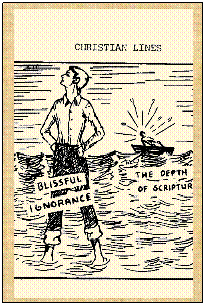 CHRISTIAN LINES
BLISSFUL
IGNORANCE
THE DEPTH
OF SCRIPTUR